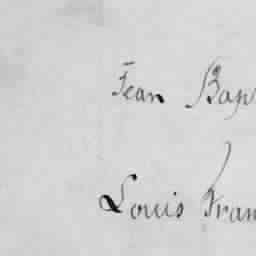 Jean Bap
Louis Fran